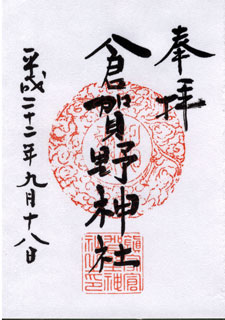 奉拝
倉賀野神社
平成二十二年九月十八日